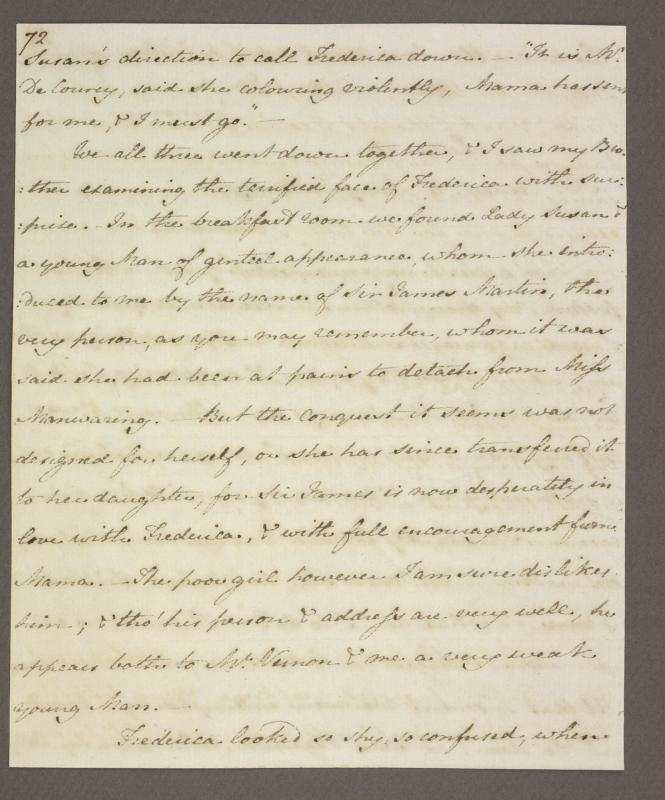 72
Susan's direction to call Frederica down. — "It is Mr.
De Courcy, said she colouring violently, Mama has sent
for me, & I must go." —
We all three went down together, & I saw my Bro:
:ther examining the terrified face of Frederica with sur:
:prise. — In the breakfast room we found Lady Susan &
a young Man of genteel appearance, whom she intro:
:duced to me by the name of Sir James Martin, the
very person, as you may remember, whom it was
said she had been at pains to detach from Miss
Manwaring. — But the conquest it seems was not
designed for herself, or she has since transferred it
to her daughter, for Sir James is now desperately in
love with Frederica, & with full encouragement from
Mama. — The poor girl however I am sure dislikes
him; & tho' his person & address are very well, he
appears both to Mr. Vernon & me a very weak
young Man. —
Frederica looked so shy, so confused, when